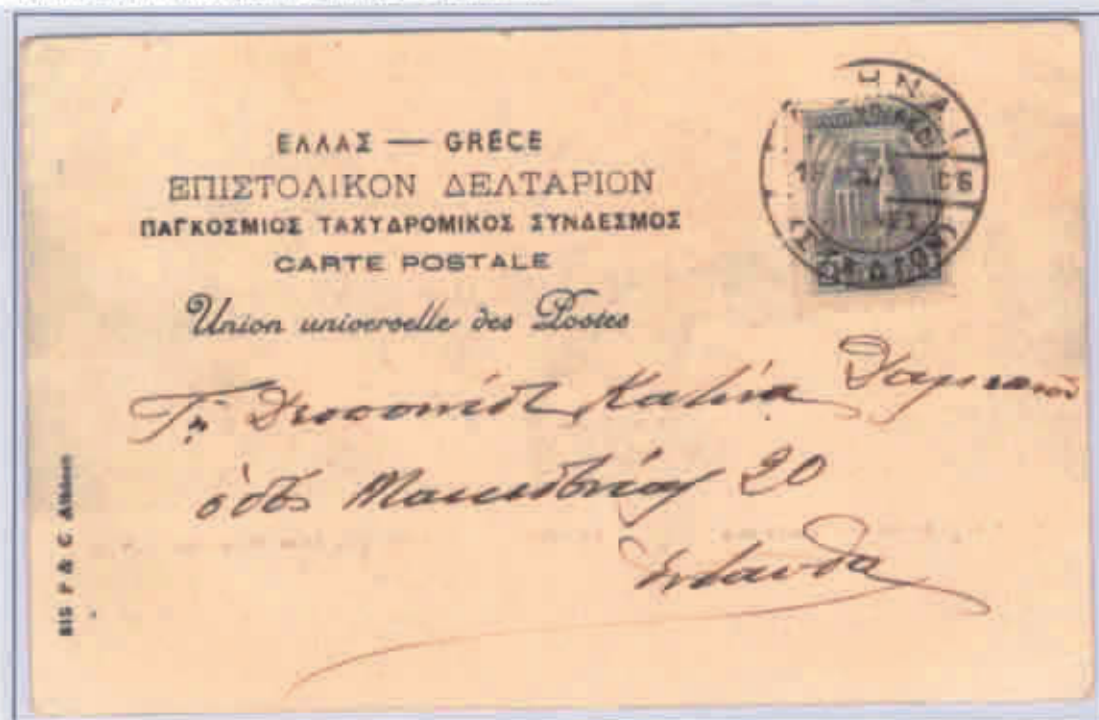 ΕΛΛΑΣ — GRÈCE
ΕΠΙΣΤΟΛΙΚΟΝ ΔΕΛΤΑΡΙΟΝ
ΠΑΓΚΟΣΜΙΟΣ ΤΑΧΥΔΡΟΜΙΚΟΣ ΣΥΝΔΕΣΜΟΣ
CARTE POSTALE
Union universelle des Postes
Τῇ Δεσποινίδι Κατίνα
ὁδὸς Μακεδονίας 20
Ἐνταῦθα
815 P & C. Athènes
ΗΝΑΙ
06